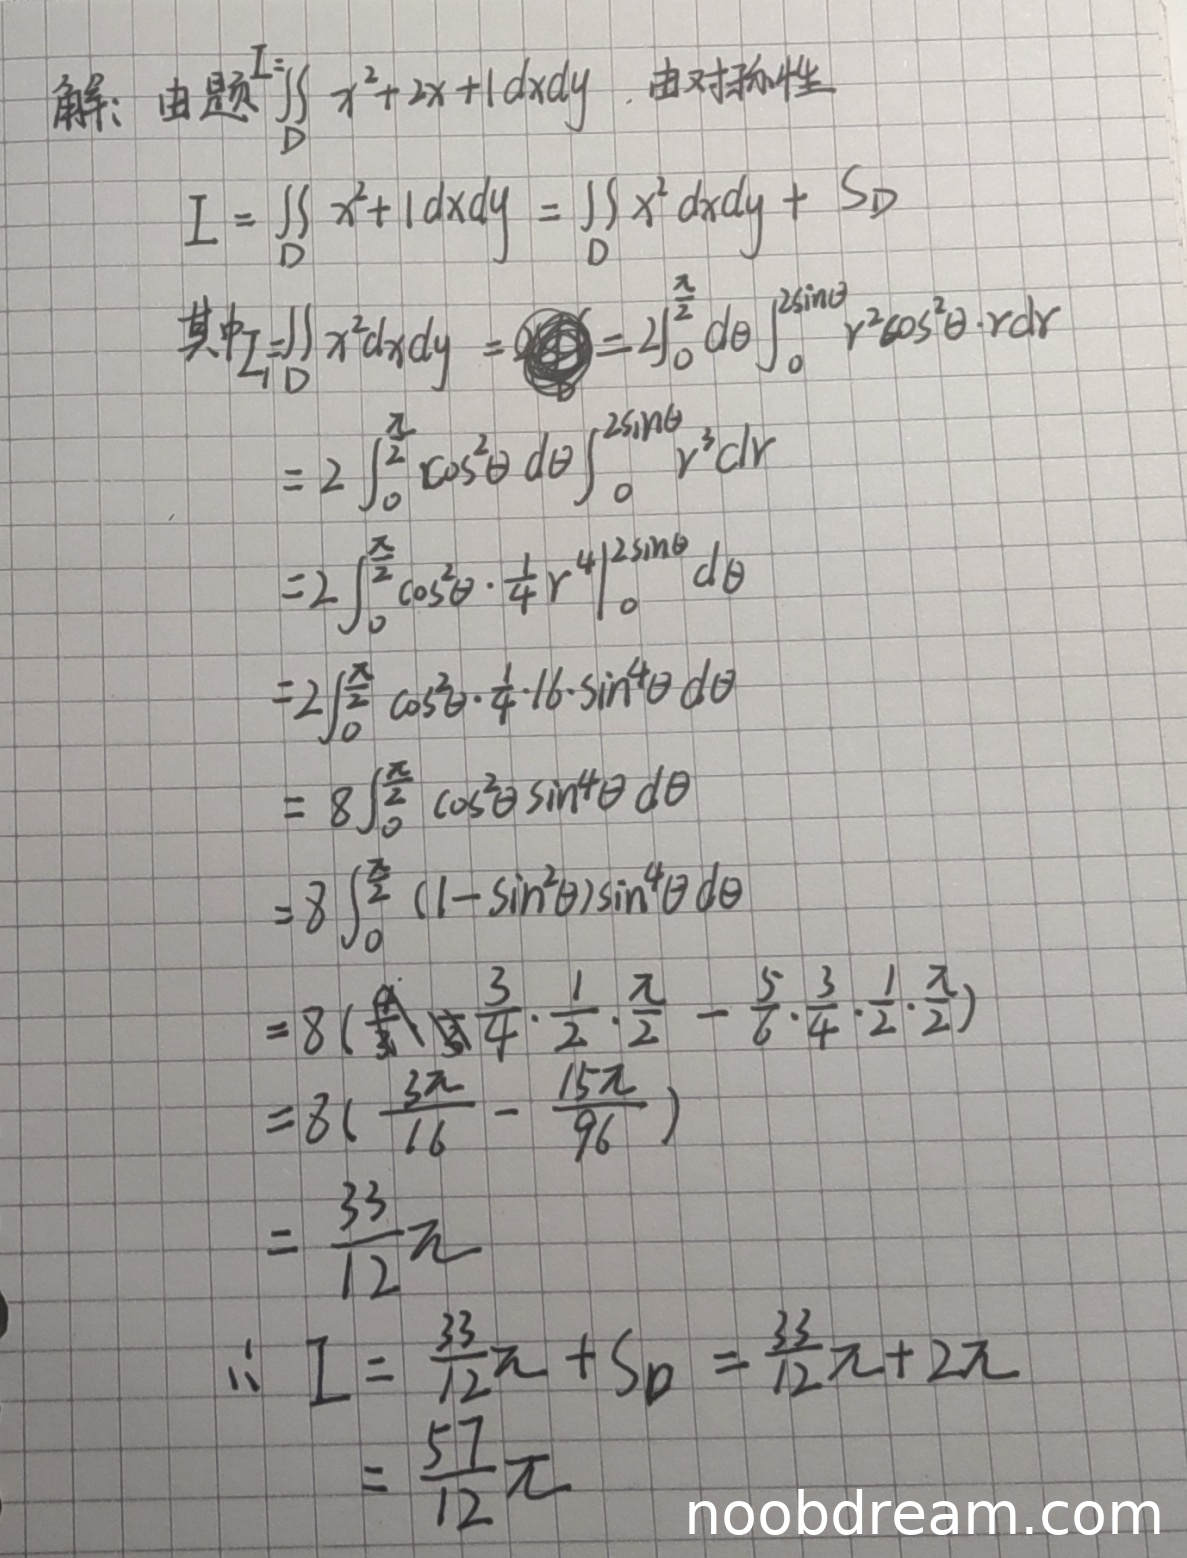 解: 由题 I=∬_D x²+2x+1dxdy . 由对称性
I = ∬_D x²+1dxdy = ∬_D x²dxdy + S_D
其中I₁=∬_D x²dxdy = = 2∫_0^{π/2} dθ ∫_0^{2sinθ} r²cos²θ·rdr
= 2∫_0^{π/2} cos²θ dθ ∫_0^{2sinθ} r³dr
= 2∫_0^{π/2} cos²θ · 1/4 r⁴|_0^{2sinθ} dθ
= 2∫_0^{π/2} cos²θ · 1/4 · 16 · sin⁴θ dθ
= 8∫_0^{π/2} cos²θ sin⁴θ dθ
= 8∫_0^{π/2} (1-sin²θ)sin⁴θ dθ
= 8( 3/4 · 1/2 · π/2 - 5/6 · 3/4 · 1/2 · π/2 )
= 8( 3π/16 - 15π/96 )
= 33/12 π
∴ I = 33/12 π + S_D = 33/12 π + 2π
= 57/12 π
noobdream.com